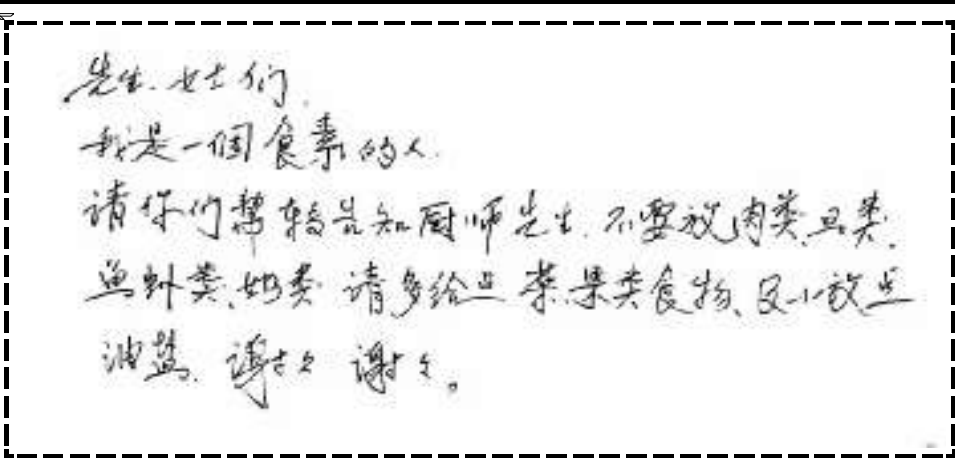 先生.女士们.
我是一個食素的人.
请你们帮转告知厨师先生.不要放肉类.豆类.
鱼虾类.奶类 请多给点 菜.果类食物、及小放点
油盐. 谢谢 谢谢。